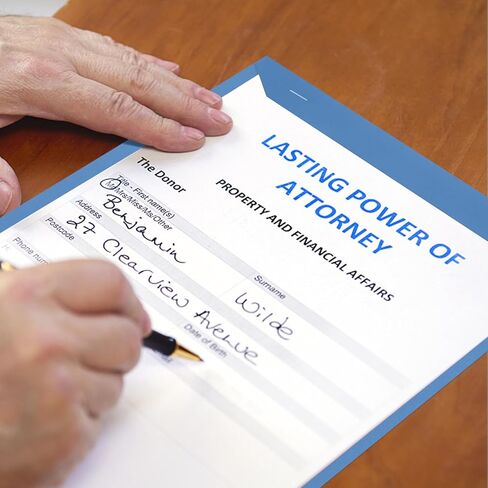 LASTING POWER OF
ATTORNEY
PROPERTY AND FINANCIAL AFFAIRS
The Donor
Title - First name(s)
Mr/Mrs/Miss/Ms/Other
Surname
Benjamin
Wilde
Address
27 Clearview Avenue
Postcode
Date of Birth
Phone number